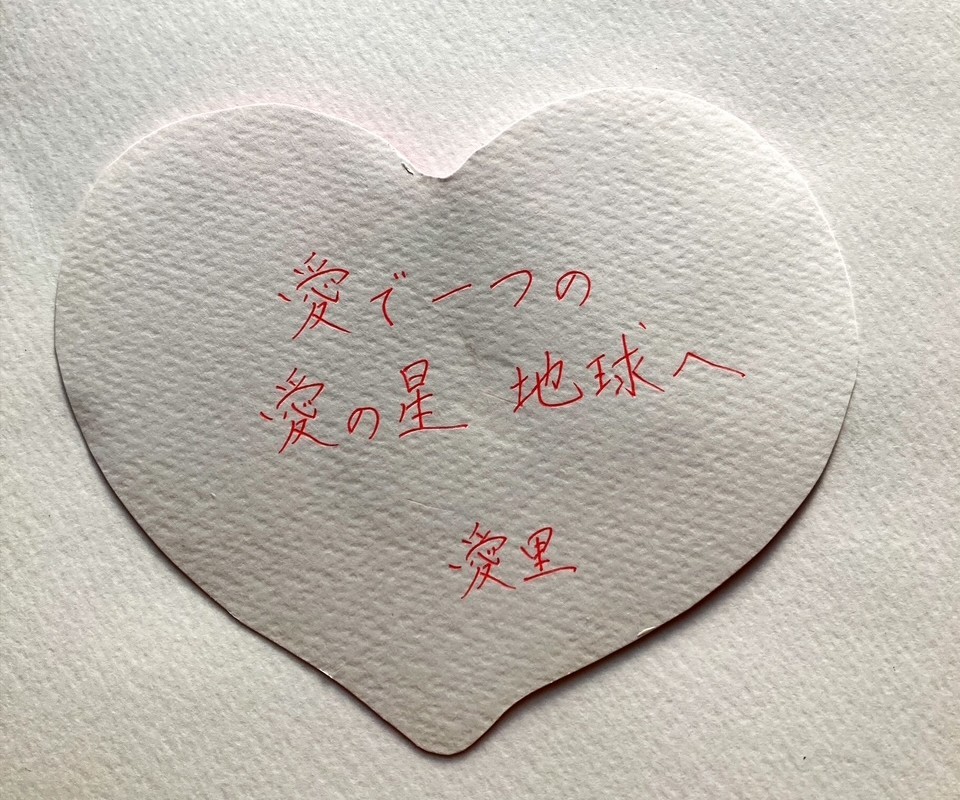 愛で一つの
愛の星　地球へ
愛里